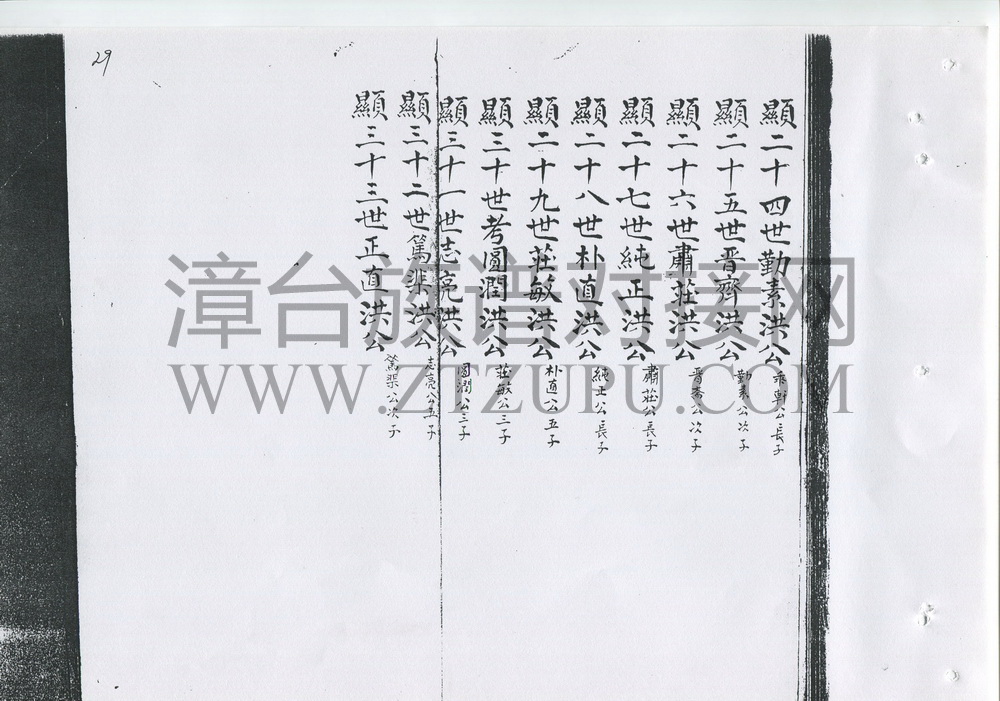 29
顯二十四世勤素洪公 乘軒公長子
顯二十五世晋齊洪公 勤素公次子
顯二十六世肅莊洪公 晋齋公次子
顯二十七世純正洪公 肅莊公長子
顯二十八世朴直洪公 純正公長子
顯二十九世莊敏洪公 朴直公五子
顯三十世考圓潤洪公 莊敏公三子
顯三十一世志亮洪公 圓潤公三子
顯三十二世篤渠洪公 志亮公五子
顯三十三世正直洪公 篤渠公次子
漳台族谱对接网
WWW.ZTZUPU.COM